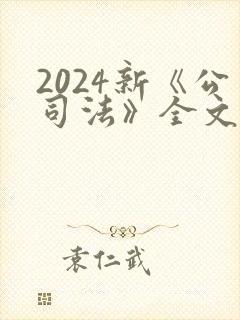 2024新《公
司法》全文
袁仁武